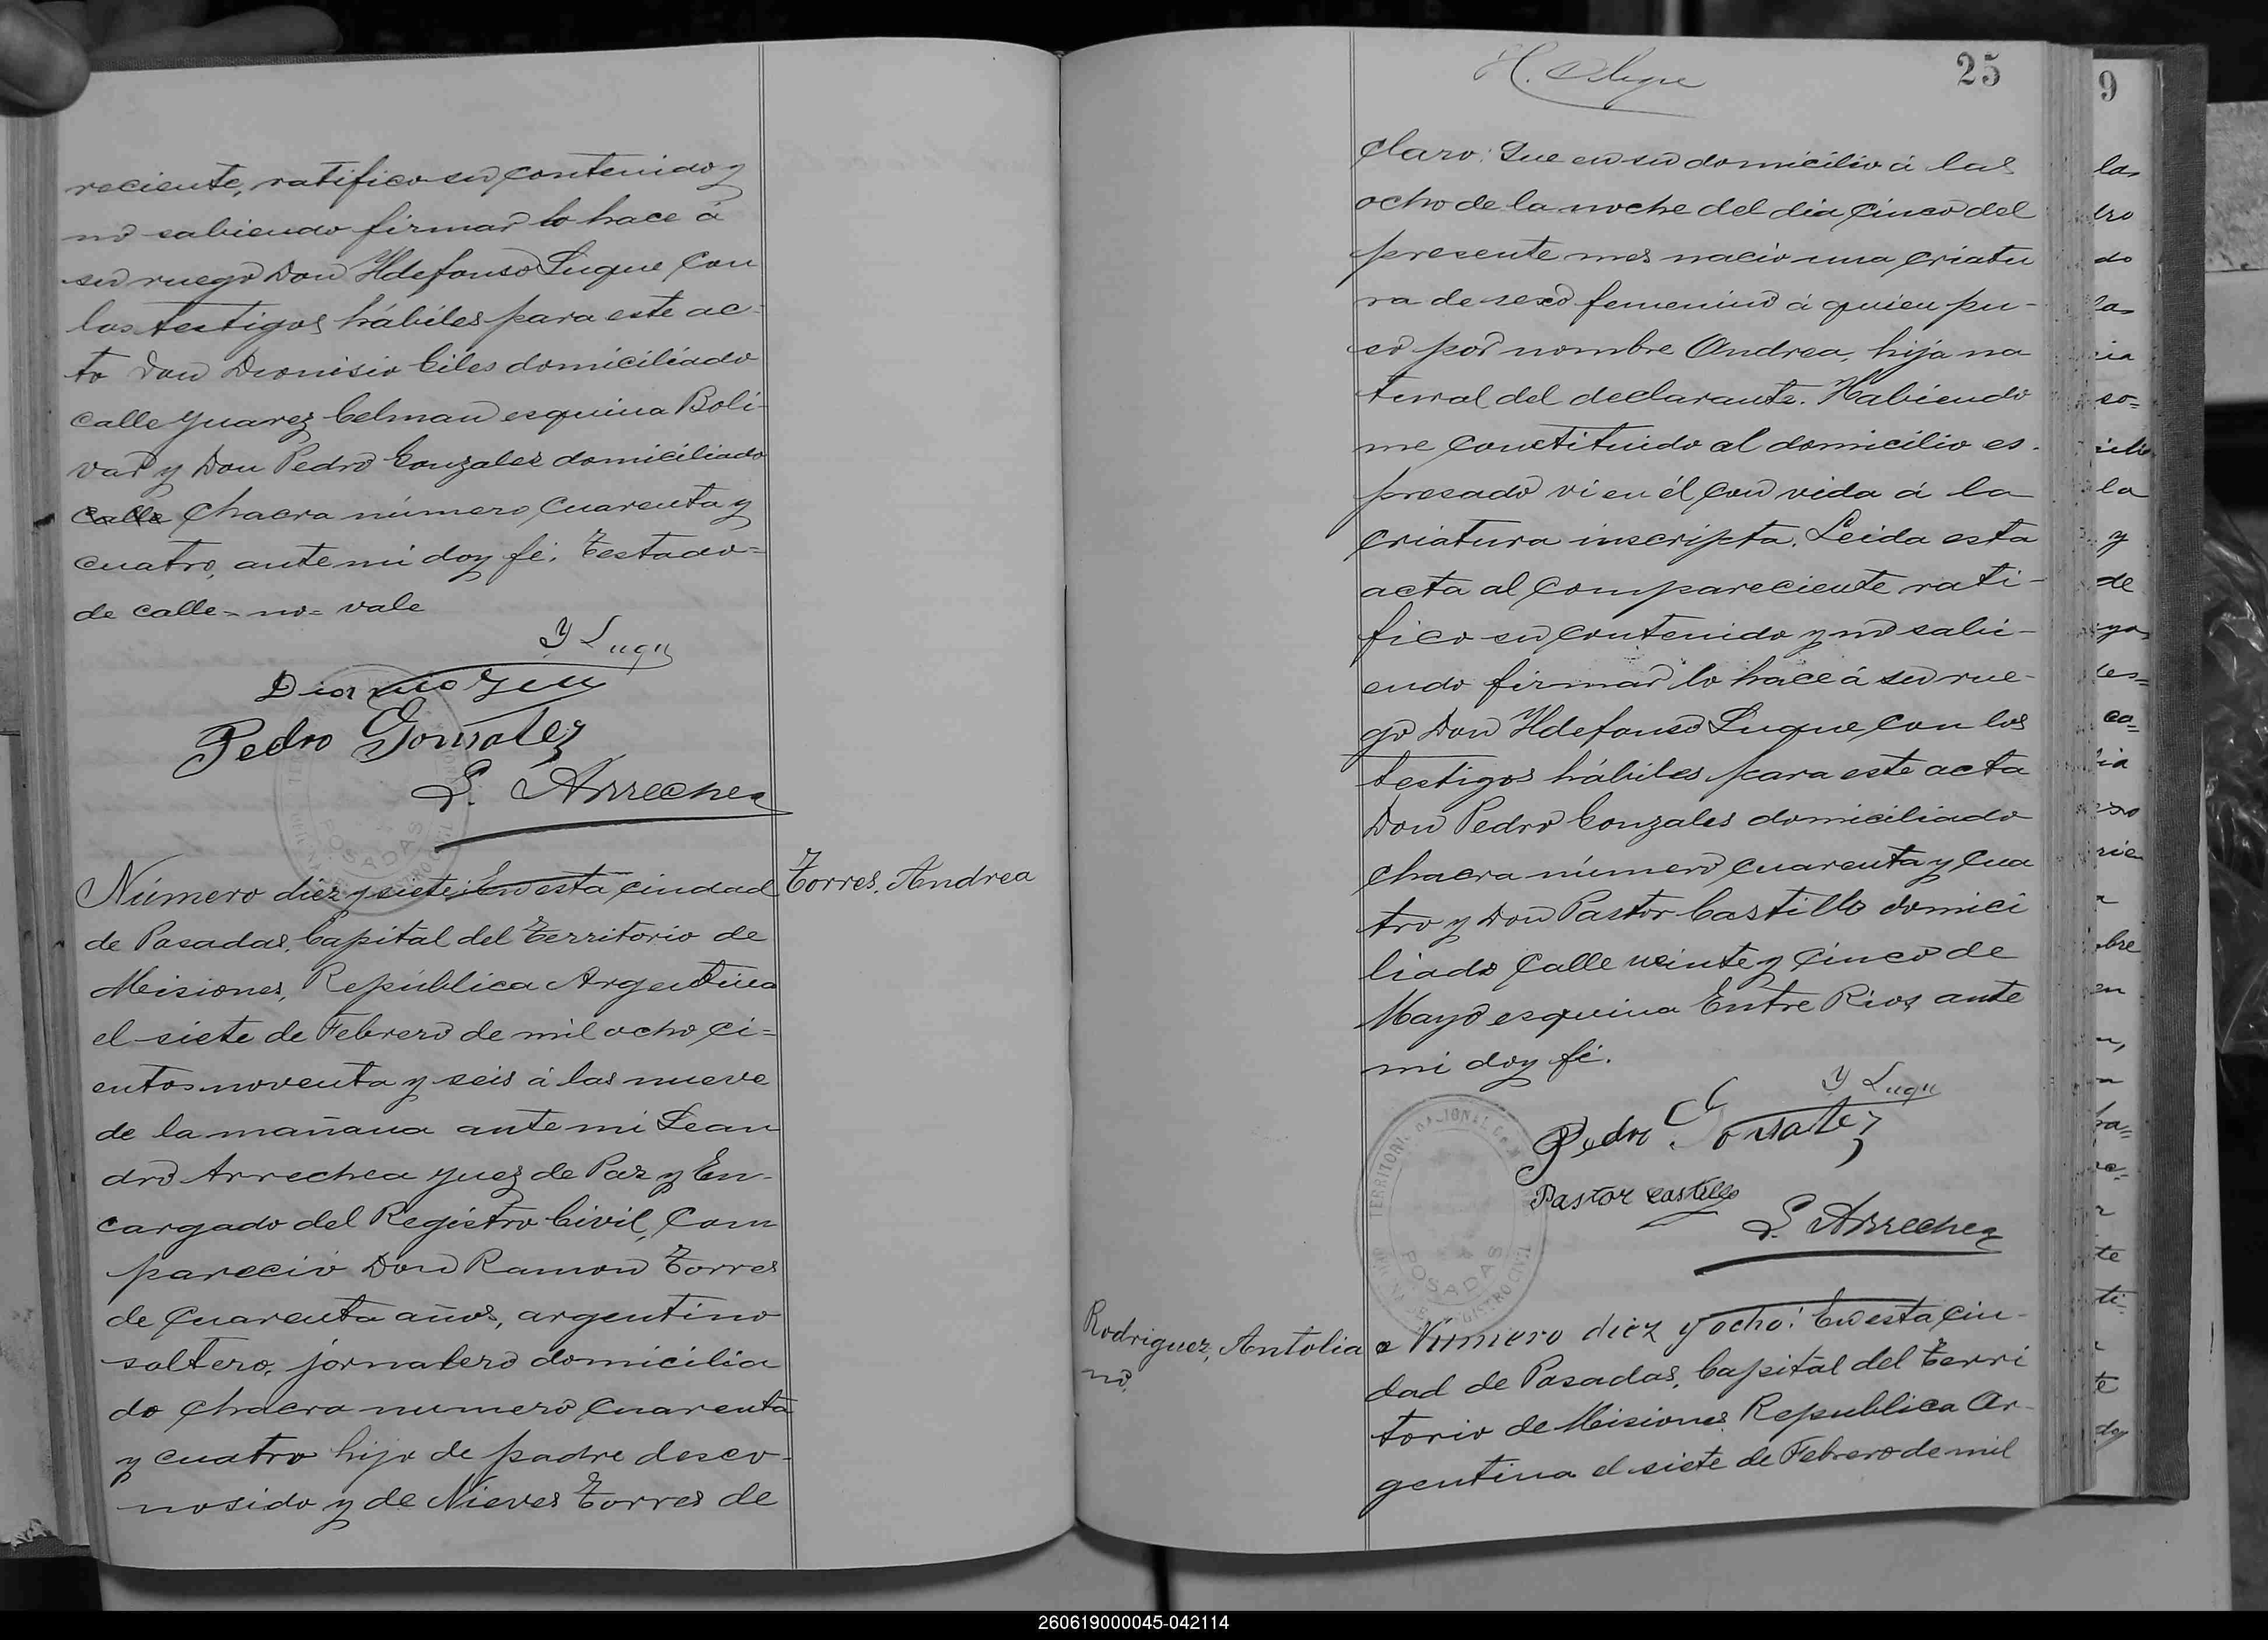 reciente, ratifico su contenido y
no sabiendo firmar lo hace á
su ruego Don Yldefonso Luque con
los testigos hábiles para este ac-
to Don Dionisio Giles domiciliado
calle Yuarez Celman esquina Boli-
var y Don Pedro Gonzales domiciliado
calle chacra número cuarenta y
cuatro, ante mi doy fé. Testado=
de calle= no= vale
Y Luqu
Pedro Gonsalez
L. Arrechea
POSADAS
Número diez y siete: En esta ciudad
Torres, Andrea
de Posadas, Capital del Territorio de
Misiones, República Argentina
el siete de Febrero de mil ocho ci=
entos noventa y seis á las nueve
de la mañana ante mi Lean
dro Arrechea Yuez de Paz y En-
cargado del Registro Civil, Com
pareció Don Ramon Torres
de cuarenta años, argentino
soltero, jornalero domicilia
do chacra numero cuarenta
y cuatro hijo de padre desco-
nosido y de Nieves Torres de
25
claro: Que en su domicilio á las
ocho de la noche del dia cinco del
presente mes nació una criatu
ra de sexo femenino á quien pu-
so por nombre Andrea, hija na
tural del declarante. Habiendo
me constituido al domicilio es-
presado vi en él con vida á la
criatura inscripta. Leida esta
acta al compareciente rati-
fico su contenido y no sabi-
endo firmar lo hace á su rue-
go Don Yldefonso Luque con los
testigos hábiles para este acta
Don Pedro Gonzales domiciliado
chacra número cuarenta y cua
tro y Don Pastor Castillo domici
liado calle veinte y cinco de
Mayo esquina Entre Rios, ante
mi doy fé.
Y Luqu
Pedro Gonsalez
Pastor Castillo
L. Arrechea
POSADAS
Rodriguez, Antolia
no.
Número diez y ocho: En esta ciu-
dad de Posadas, Capital del Terri
torio de Misiones Republica Ar-
gentina el siete de Febrero de mil
9
260619000045-042114